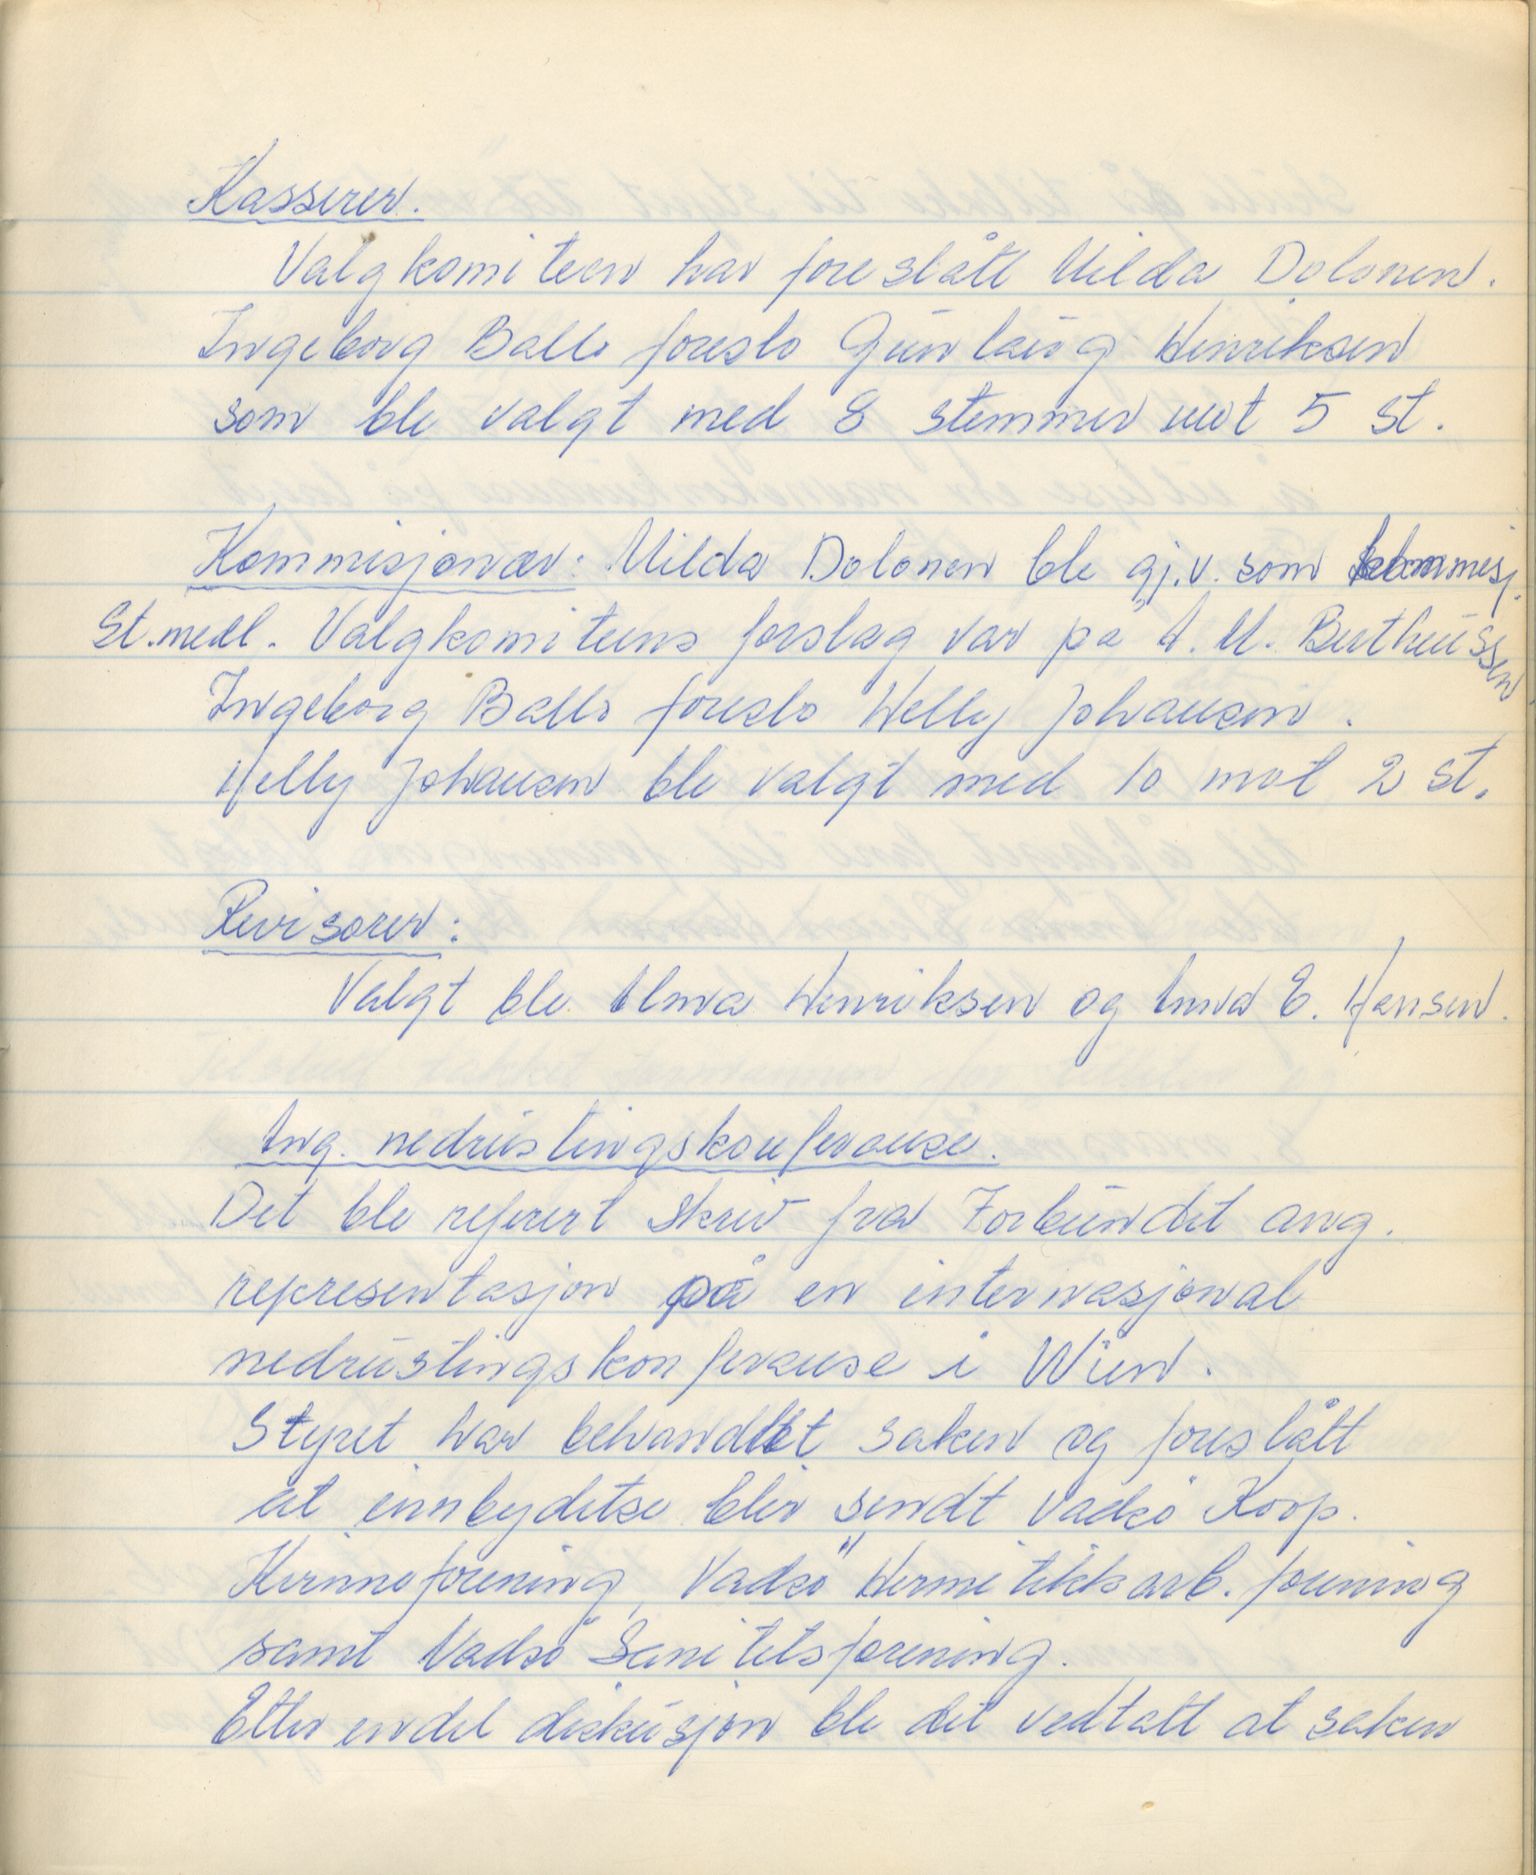 Kasserer.
Valgkomiteen har foreslått Milda Dolonen.
Ingeborg Ballo foreslo Gunlaug Henriksen
som ble valgt med 8 stemmer mot 5 st.
Kommisjonær: Milda Dolonen ble gj.v. som kommisj.
St.medl. Valgkomiteens forslag var på A. M. Bertheussen
Ingeborg Ballo foreslo Helly Johansen.
Helly Johansen ble valgt med 10 mot 2 st.
Revisorer:
Valgt ble Alma Henriksen og Anna E. Hansen.
Ang. nedrustingskonferanse.
Det ble referert skriv fra Forbundet ang.
representasjon på en internasjonal
nedrustingskonferanse i Wien.
Styret har behandlet saken og foreslått
at innbydelse blir sendt Vadsö Koop.
Kvinneforening, Vadsö Hermetikkarb. forening
samt Vadsö Sanitetsforening.
Etter endel diskusjon ble det vedtatt at saken